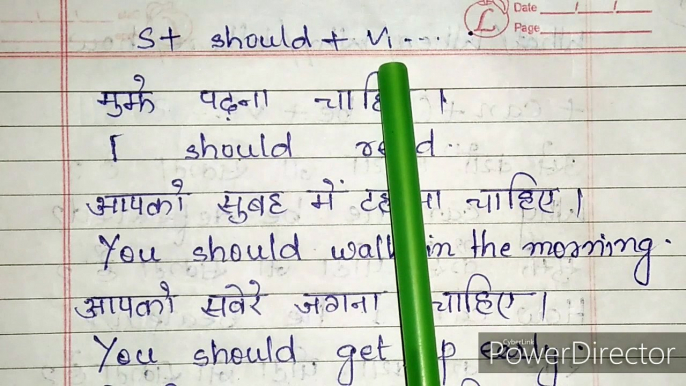 Date / /
Page
S+ should + V₁ ...
मुझे पढ़ना
I should
आपको सुबह में चाहिए।
You should in the morning.
आपको सवेरे जगना चाहिए।
You should get early
CyberLink
PowerDirector